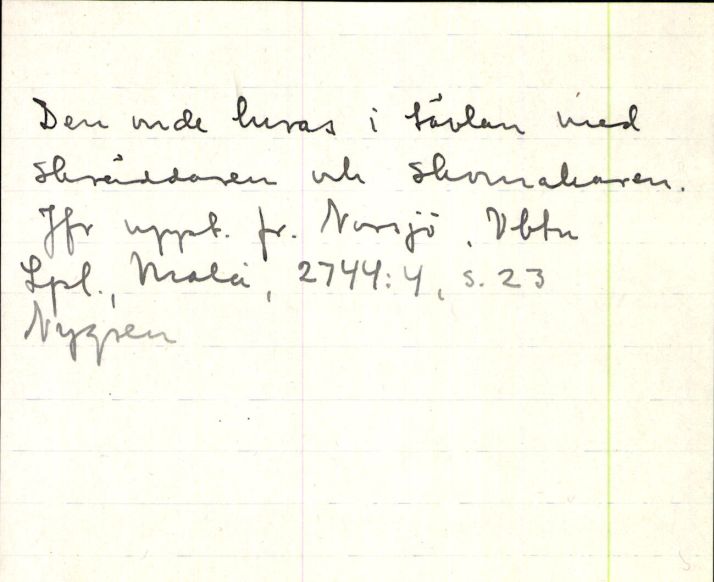 Den onde luras i tävlan med
skräddaren och skomakaren.
Jfr uppt. fr. Norsjö, Vbtn
Lpl., Malå, 2744:4, s. 23
Nygren